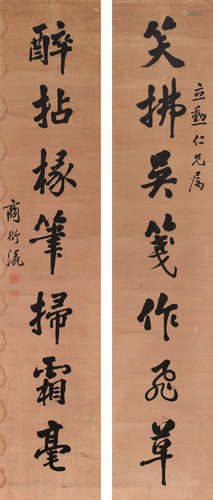 笑拂吴箋作飛草
立勳仁兄属
醉拈椽筆掃霜毫
商衍瀛